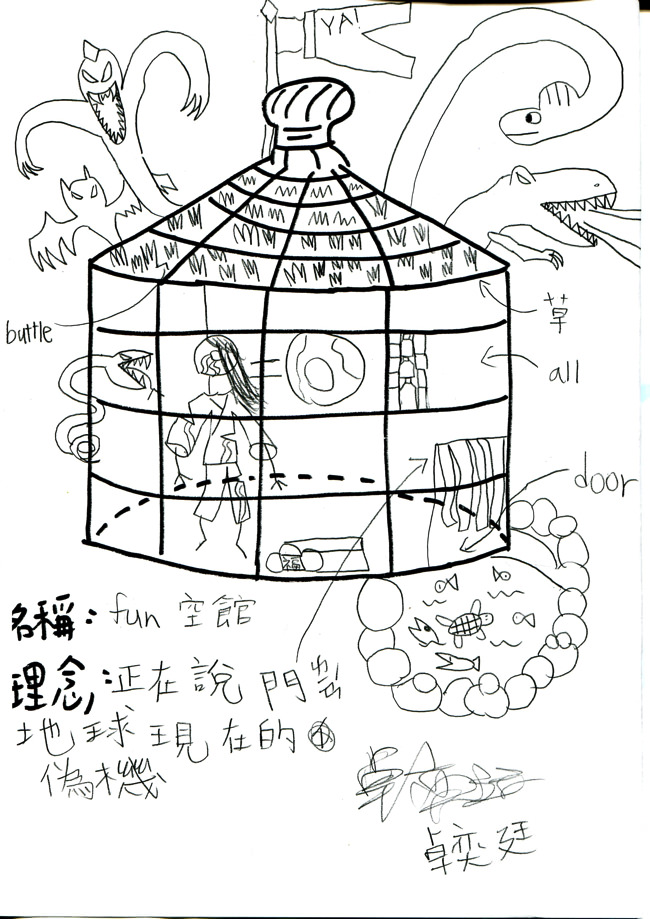 YA!
buttle
草
all
door
福
名稱：fun 空館
理念：正在說 門
地球現在的
偽機
卓奕廷